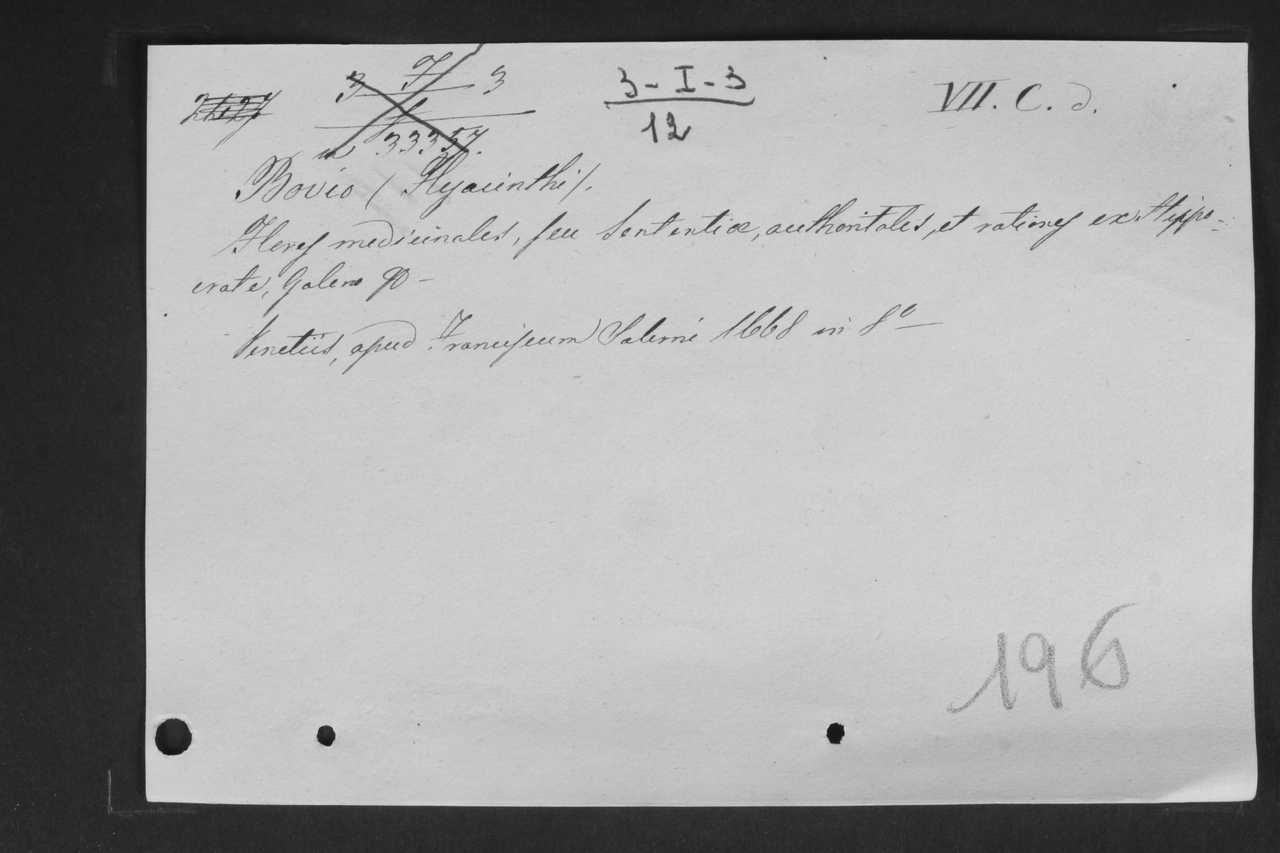 3 7 3
3-I-3
12
VII. C. d.
n 33357.
Bovio (Hyacinthi).
Flores medicinales, seu Sententiæ, authoritates, et rationes ex Hippo-
crate, Galeno
Venetiis, apud Franciscum Salerni 1668 in 8º
196